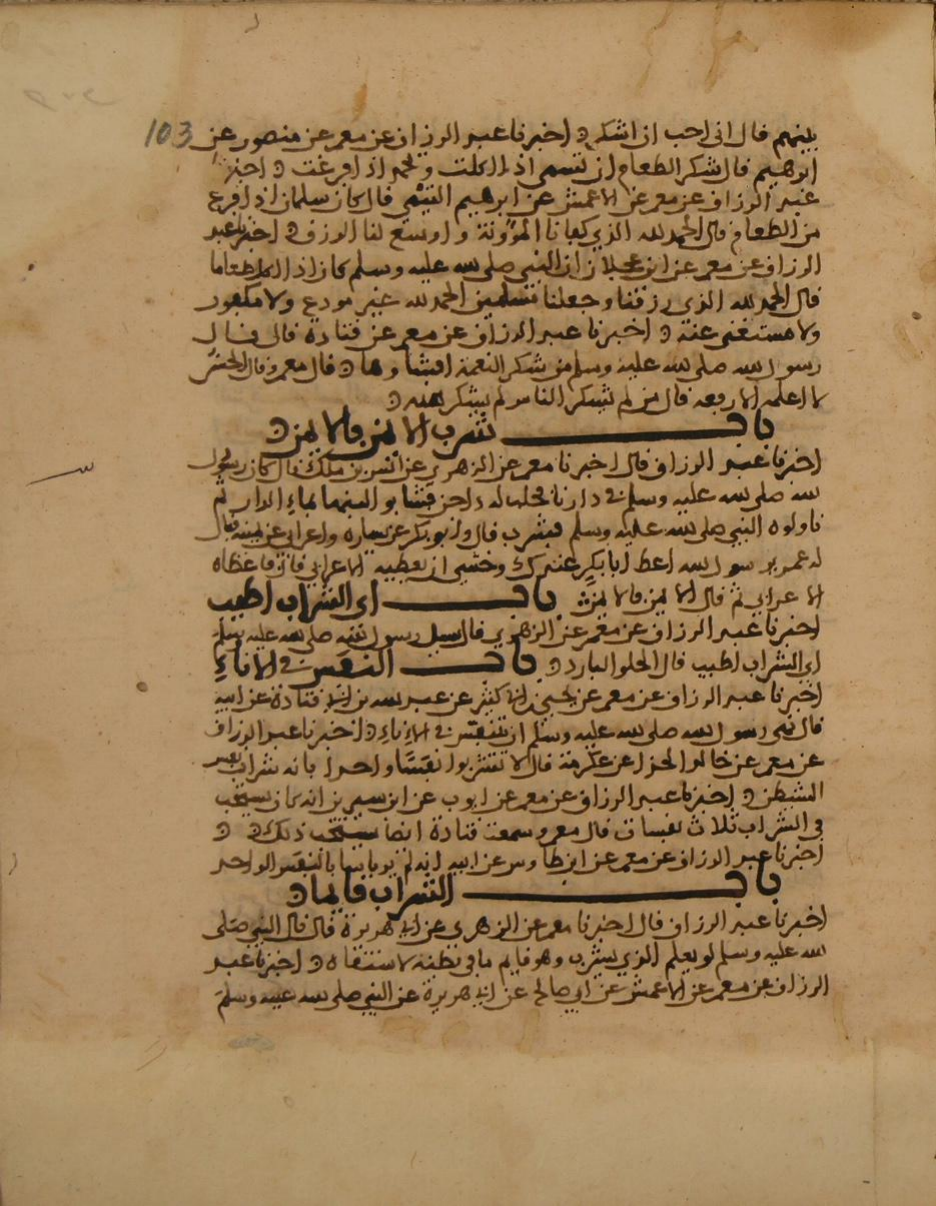 103
بينهم قال اني احب ان اشكر ه اخبرنا عبد الرزاق عن معمر عن منصور عن
ابرهيم قال شكر الطعام ان تسمي اذا اكلت وتحمد اذا فرغت ه اخبرنا
عبد الرزاق عن معمر عن الاعمش عن ابرهيم التيمي قال كان سلمان اذا فرغ
من الطعام قال الحمد لله الذي كفانا المؤونة واوسع لنا الرزق ه اخبرنا عبد
الرزاق عن معمر عن ابن عجلان ان النبي صلى الله عليه وسلم كان اذا اكل طعاما
قال الحمد لله الذي رزقنا وجعلنا مسلمين الحمد لله غير مودع ولا مكفور
ولا مستغنى عنه ه اخبرنا عبد الرزاق عن معمر عن قتادة قال قال
رسول الله صلى الله عليه وسلم من شكر النعمة افشاوها ه قال معمر وقال الحسن
لا اعلمه الا رفعه قال من لم يشكر الناس لم يشكر الله ه
باب شرب الايمن فالايمن ه
اخبرنا عبد الرزاق قال اخبرنا معمر عن الزهري عن انس بن ملك قال كان رسول
الله صلى الله عليه وسلم في دارنا فحلب له داجن فشابوا لبنها بماء الدار ثم
ناولوه النبي صلى الله عليه وسلم فشرب قال وابو بكر عن يساره واعرابي عن يمينه فقال
له عمر يرسول الله اعط ابا بكر عندك وخشي ان يعطيه الاعرابي قال فاعطاه
الاعرابي ثم قال الايمن فالايمن باب اي الشراب اطيب
اخبرنا عبد الرزاق عن معمر عن الزهري قال سيل رسول الله صلى الله عليه وسلم
اي الشراب اطيب قال الحلو البارد ه باب النفس في الاناء
اخبرنا عبد الرزاق عن معمر عن يحيى بن ابي كثير عن عبد الله بن ابي قتادة عن ابيه
قال نهى رسول الله صلى الله عليه وسلم ان يتنفس في الاناء ه اخبرنا عبد الرزاق
عن معمر عن خالد الحذا عن عكرمة قال لا تشربوا نفسا واحدا بانه شراب
الشيطن ه اخبرنا عبد الرزاق عن معمر عن ايوب عن ابن سيرين انه كان يستحب
في الشراب ثلاث نفسات قال معمر وسمعت قتادة ايضا يستحب ذلك ه
اخبرنا عبد الرزاق عن معمر عن ابن طاوس عن ابيه انه لم ير باسا بالنفس الواحد
باب الشراب قايما ه
اخبرنا عبد الرزاق قال اخبرنا معمر عن الزهري عن ابي هريرة قال قال النبي صلى
الله عليه وسلم لو يعلم الذي يشرب وهو قايم ما في بطنه لاستقاه ه اخبرنا عبد
الرزاق عن معمر عن الاعمش عن ابي صالح عن ابي هريرة عن النبي صلى الله عليه وسلم